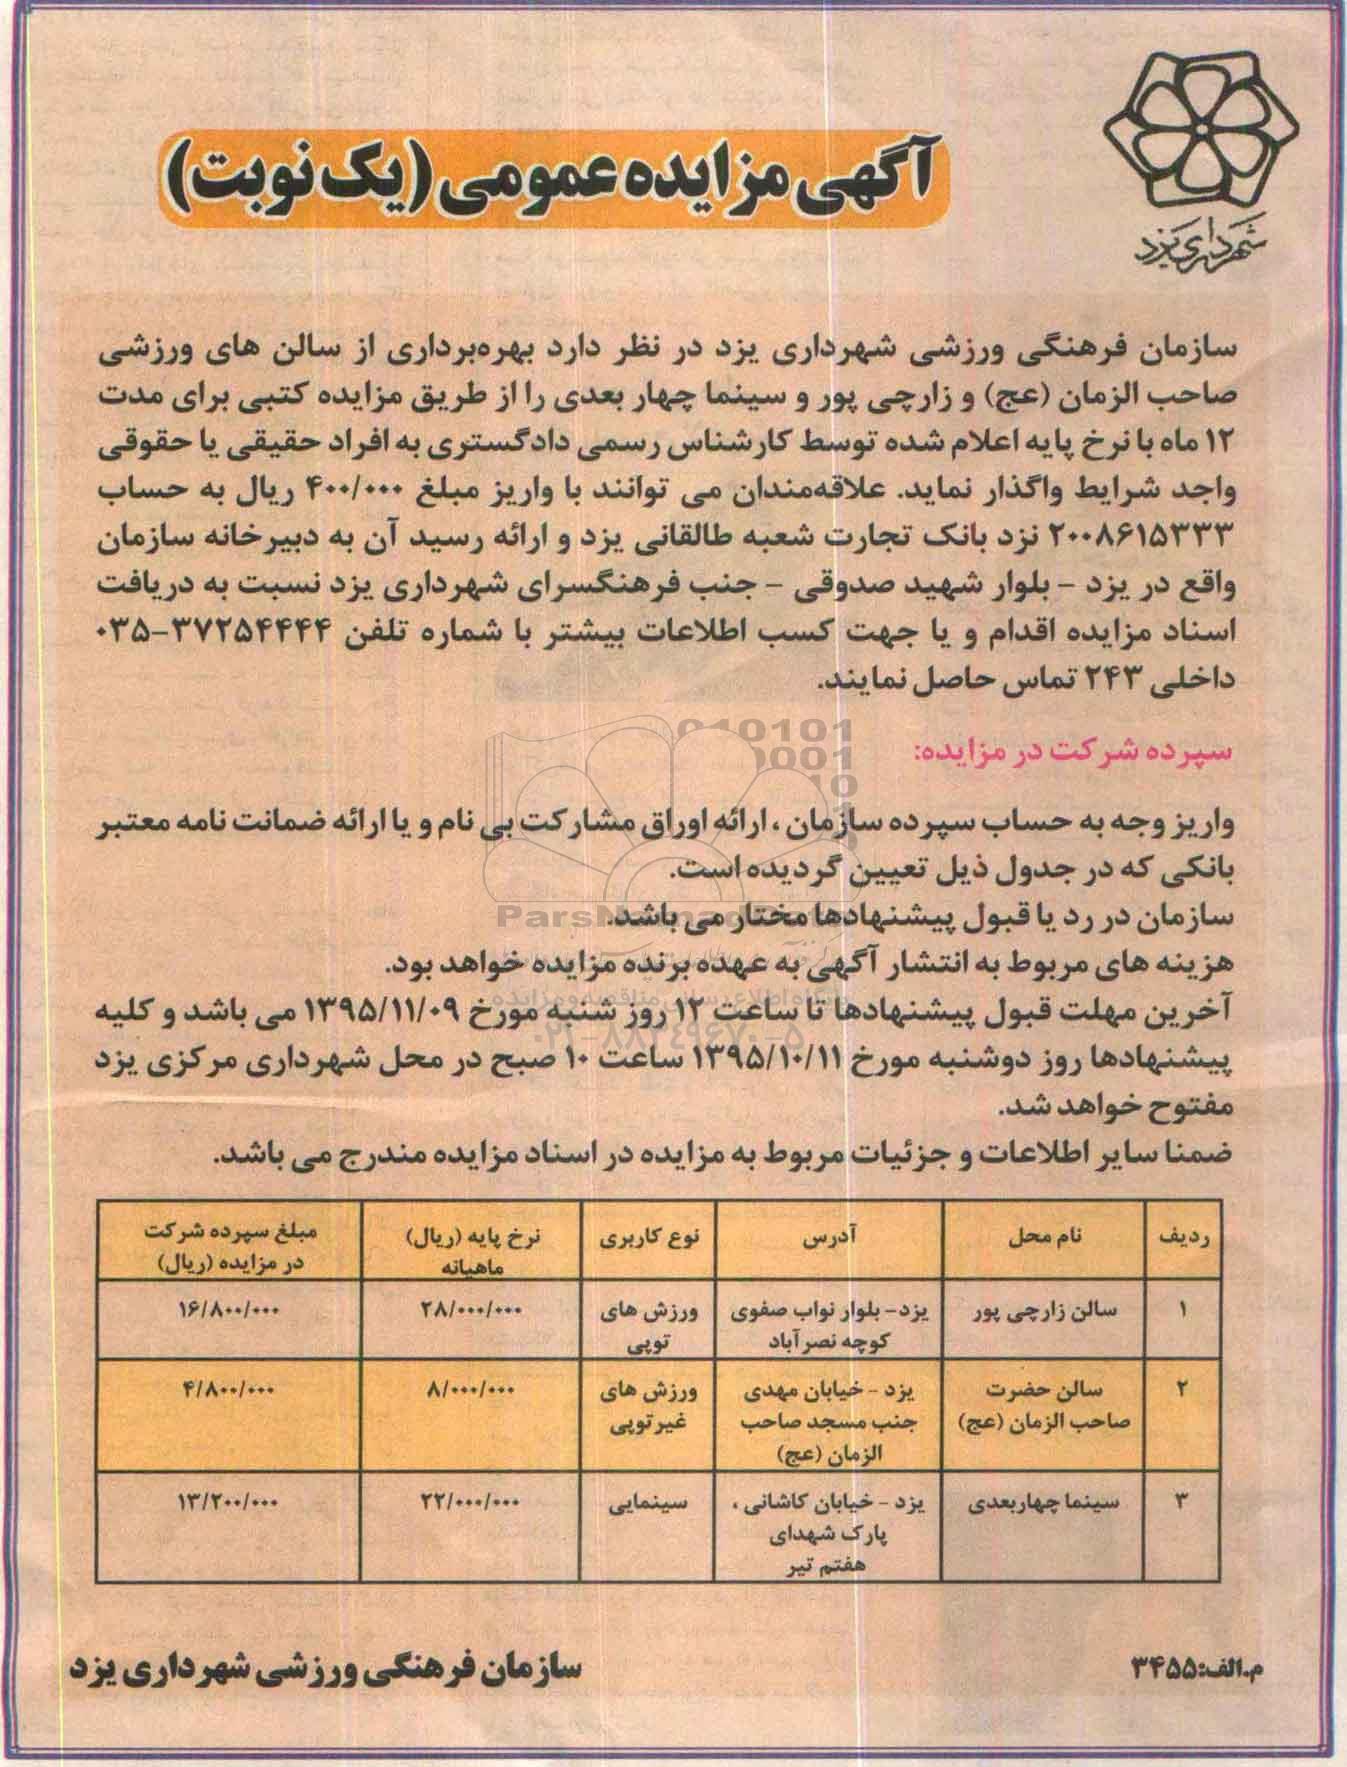 شهرداری یزد
آگهی مزایده عمومی (یک نوبت)
سازمان فرهنگی ورزشی شهرداری یزد در نظر دارد بهره‌برداری از سالن های ورزشی
صاحب الزمان (عج) و زارچی پور و سینما چهار بعدی را از طریق مزایده کتبی برای مدت
۱۲ ماه با نرخ پایه اعلام شده توسط کارشناس رسمی دادگستری به افراد حقیقی یا حقوقی
واجد شرایط واگذار نماید. علاقه‌مندان می توانند با واریز مبلغ ۴۰۰/۰۰۰ ریال به حساب
۲۰۰۸۶۱۵۳۳۳ نزد بانک تجارت شعبه طالقانی یزد و ارائه رسید آن به دبیرخانه سازمان
واقع در یزد - بلوار شهید صدوقی - جنب فرهنگسرای شهرداری یزد نسبت به دریافت
اسناد مزایده اقدام و یا جهت کسب اطلاعات بیشتر با شماره تلفن ۳۷۲۵۴۴۴۴-۰۳۵
داخلی ۲۴۳ تماس حاصل نمایند.
سپرده شرکت در مزایده:
واریز وجه به حساب سپرده سازمان ، ارائه اوراق مشارکت بی نام و یا ارائه ضمانت نامه معتبر
بانکی که در جدول ذیل تعیین گردیده است.
سازمان در رد یا قبول پیشنهادها مختار می باشد.
هزینه های مربوط به انتشار آگهی به عهده برنده مزایده خواهد بود.
آخرین مهلت قبول پیشنهادها تا ساعت ۱۲ روز شنبه مورخ ۱۳۹۵/۱۱/۰۹ می باشد و کلیه
پیشنهادها روز دوشنبه مورخ ۱۳۹۵/۱۰/۱۱ ساعت ۱۰ صبح در محل شهرداری مرکزی یزد
مفتوح خواهد شد.
ضمنا سایر اطلاعات و جزئیات مربوط به مزایده در اسناد مزایده مندرج می باشد.
ردیف نام محل آدرس نوع کاربری نرخ پایه (ریال) ماهیانه مبلغ سپرده شرکت در مزایده (ریال)
۱ سالن زارچی پور یزد- بلوار نواب صفوی کوچه نصرآباد ورزش های توپی ۲۸/۰۰۰/۰۰۰ ۱۶/۸۰۰/۰۰۰
۲ سالن حضرت صاحب الزمان (عج) یزد - خیابان مهدی جنب مسجد صاحب الزمان (عج) ورزش های غیرتوپی ۸/۰۰۰/۰۰۰ ۴/۸۰۰/۰۰۰
۳ سینما چهاربعدی یزد - خیابان کاشانی ، پارک شهدای هفتم تیر سینمایی ۲۲/۰۰۰/۰۰۰ ۱۳/۲۰۰/۰۰۰
م.الف:۳۴۵۵
سازمان فرهنگی ورزشی شهرداری یزد